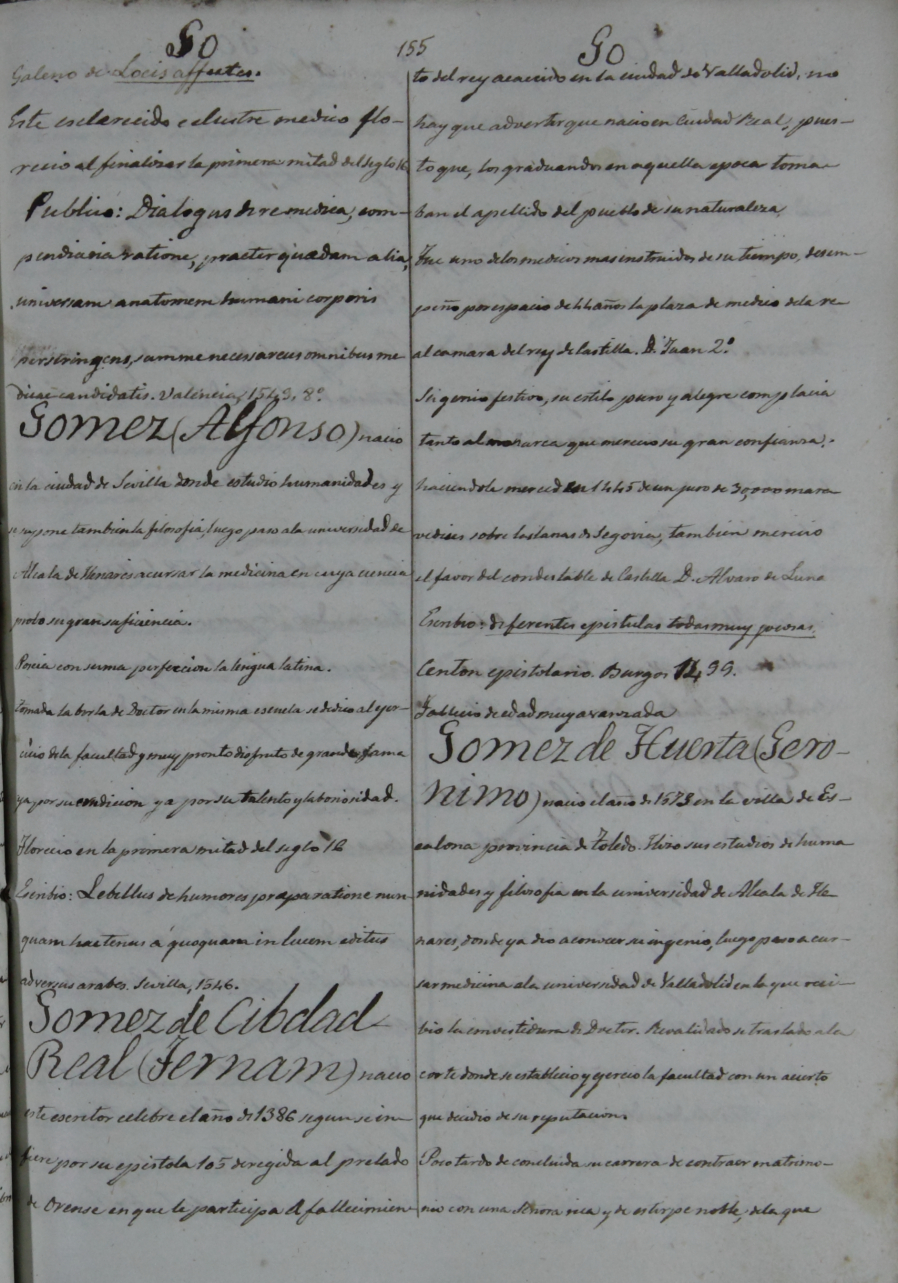 Go
155
Go
Galeno de Locis affectis.
Este esclarecido e ilustre medico flo-
recio al finalizar la primera mitad del siglo 16
Publico: Dialogus de re medica, com-
pendiaria ratione, praeter quædam alia,
universam anatomem humani corporis
perstringens, summe necessareus omnibus me-
dicae candidatis. Valencia, 1549, 8º
Gomez (Alfonso) nacio
en la ciudad de Sevilla donde estudio humanidades y
se supone tambien la filosofia, luego paso a la universidad de
Alcala de Henares a cursar la medicina en cuya ciencia
probo su gran suficiencia.
Poseia con suma perfeccion la lengua latina.
Tomada la borla de Doctor en la misma escuela se dedico al ejer-
cicio de la facultad y muy pronto disfruto de grande fama
ya por su condicion ya por su talento y laboriosidad.
Florecio en la primera mitad del siglo 16
Escribio: Lebellus de humores praeparatione nun-
quam hactenus á quoquam in lucem editus
adversus arabes. Sevilla, 1546.
Gomez de Cibdad
Real (Fernam) nacio
este escritor celebre el año de 1386 segun se in-
fiere por su epistola 105 deregida al prelado
de Orense en que le participa el fallecimien-
to del rey acaecido en la ciudad de Valladolid, no
hay que advertir que nacio en Ciudad Real, pues-
to que, los graduandos en aquella epoca toma-
ban el apellido del pueblo de su naturaleza
Fue uno de los medicos mas instruidos de su tiempo, desem-
peño por espacio de 44 años la plaza de medico de la re-
al camara del rey de Castilla. D. Juan 2º
Su genio festivo, su estilo puro y alegre complacia
tanto al monarca que merecio su gran confianza.
haciendole merced en 1445 de un juro de 30,000 mara
vedises sobre las lanas de Segovia, tambien merecio
el favor del condestable de Castilla D. Alvaro de Luna
Escribio: diferentes epistulas todas muy jocosas.
Centon epistolario. Burgos 1499.
Fallecio de edad muy avanzada
Gomez de Huerta (Gero-
nimo) nacio el año de 1573 en la villa de Es-
calona provincia de Toledo. Hizo sus estudios de huma
nidades y filosofia en la universidad de Alcala de He
nares, donde ya dio a conocer su ingenio, luego paso a cur-
sar medicina a la universidad de Valladolid en la que reci-
bio la envestidura de Doctor. Revalidado se traslado a la
corte donde se establecio y ejercio la facultad con un acierto
que decidio de su reputacion.
Poco tardo de concluida su carrera de contraer matrimo-
nio con una Señora rica y de estirpe noble, de la que